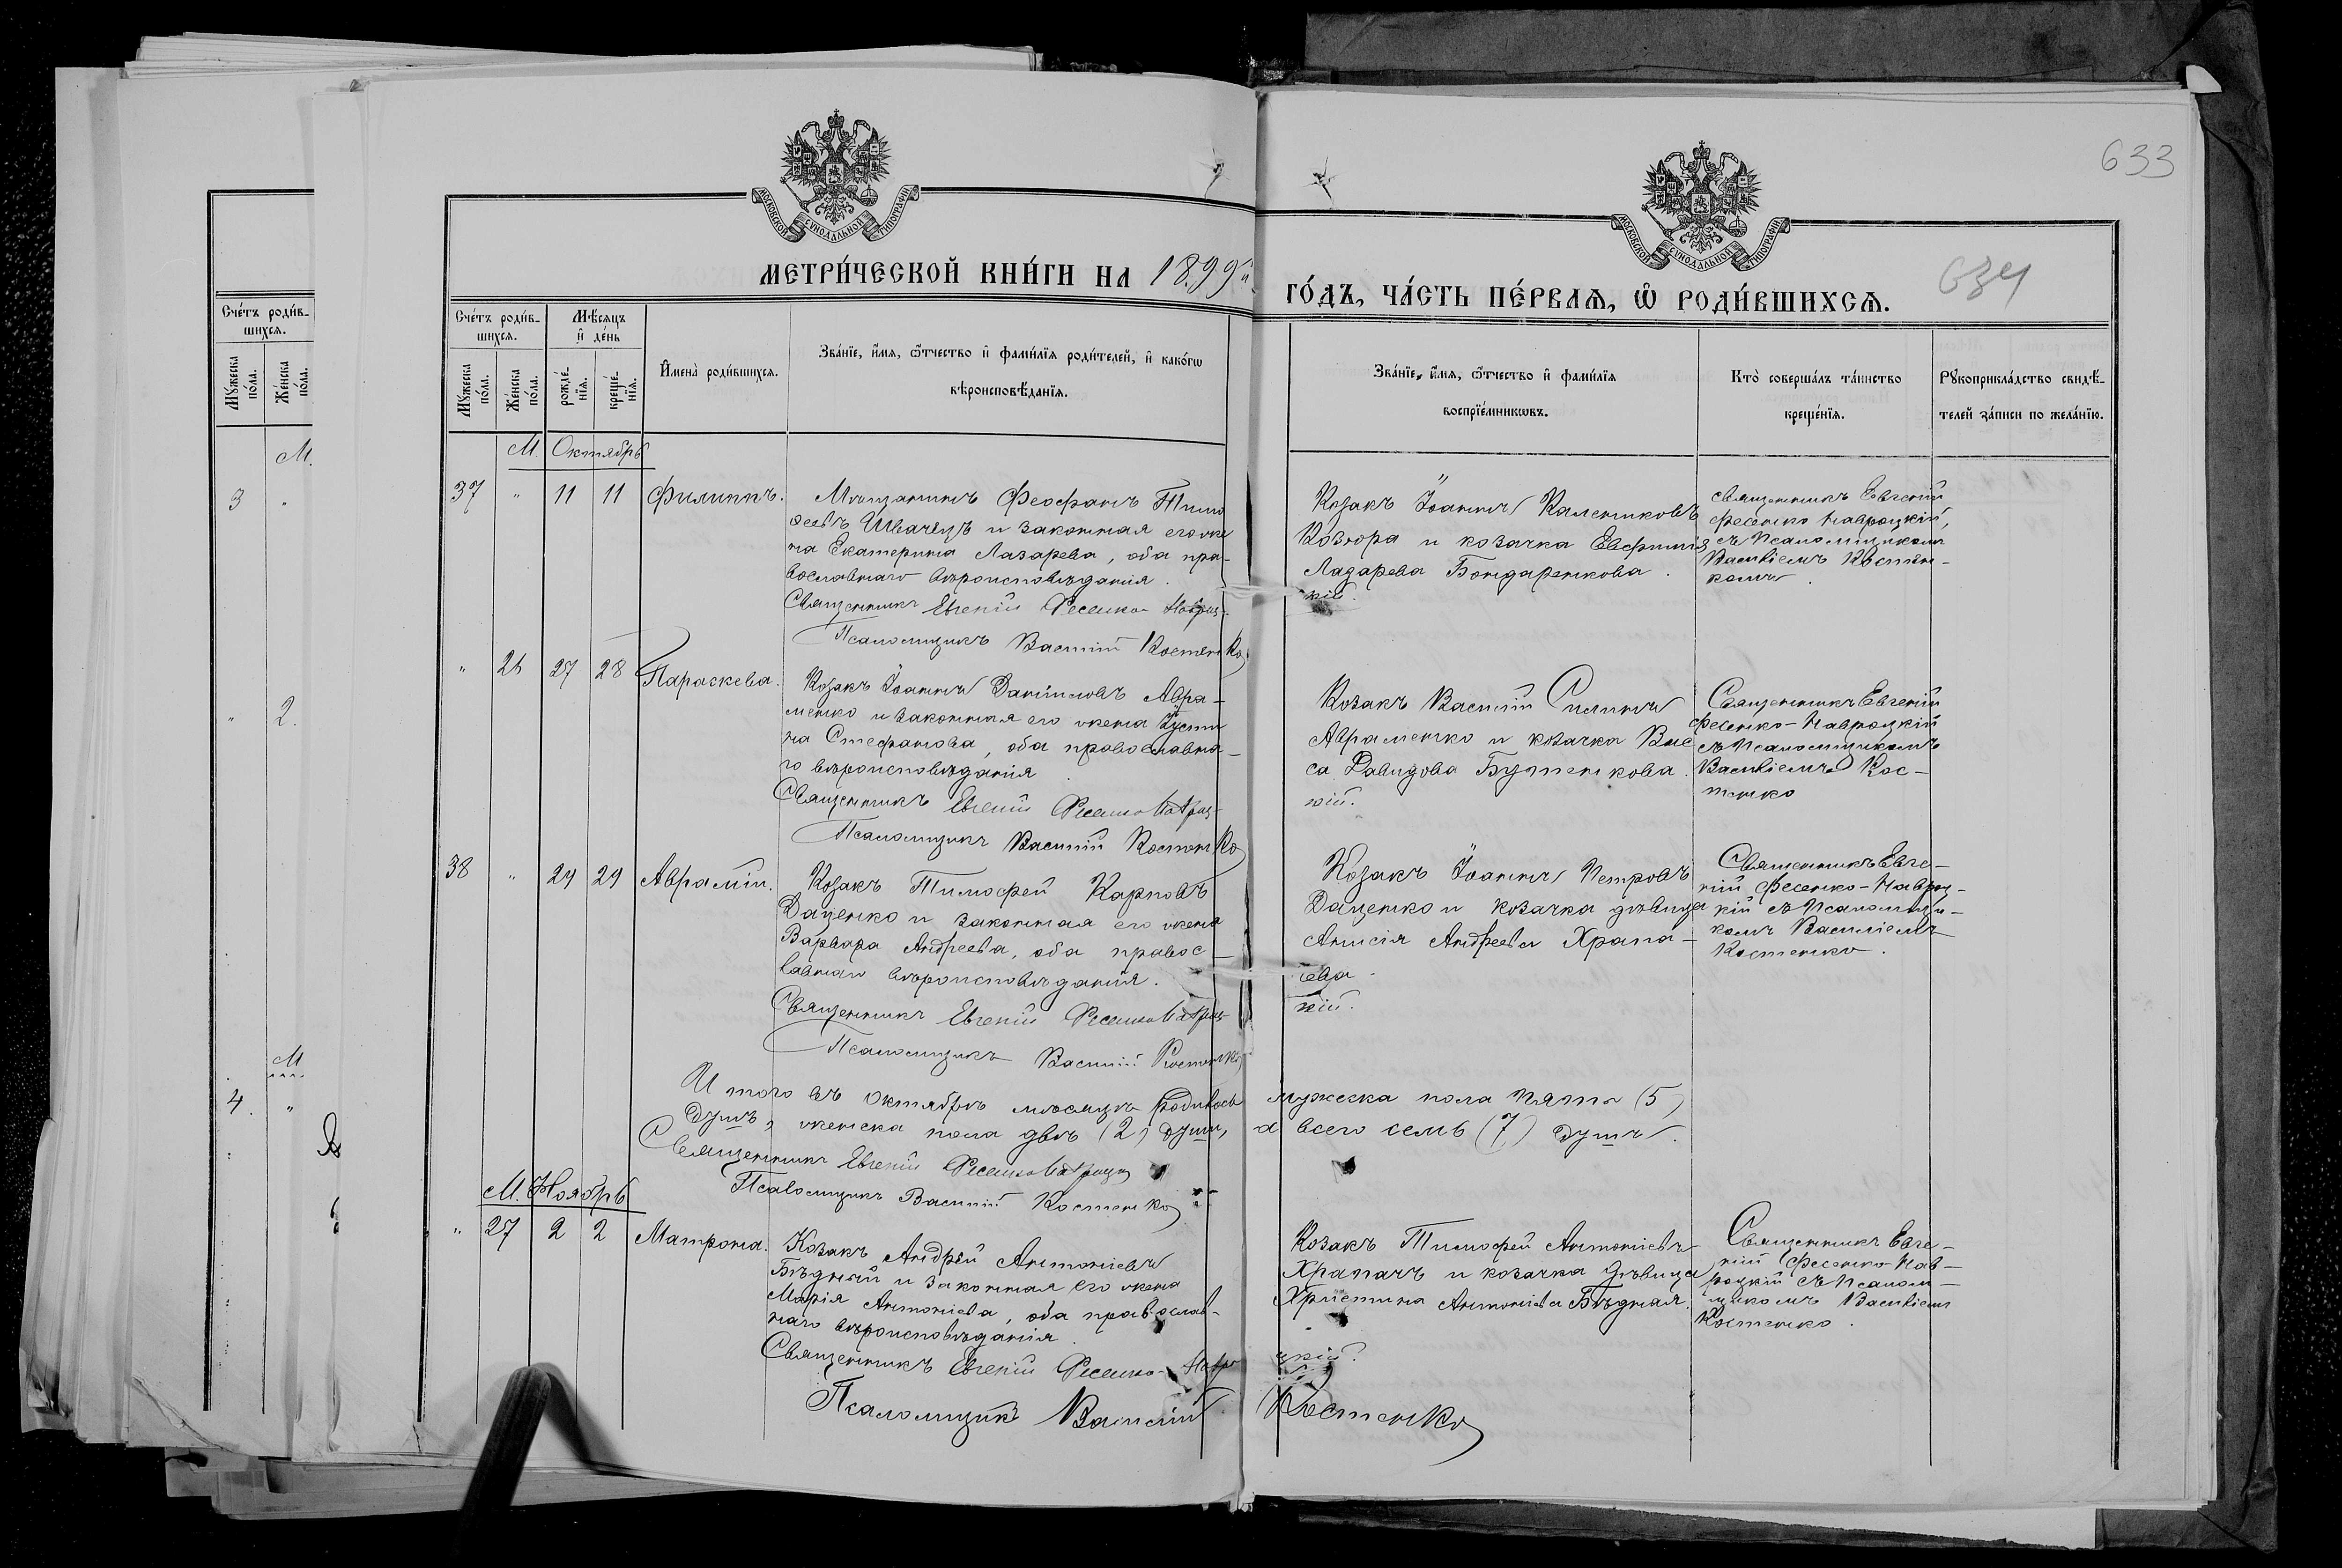 633
634
МОСКОВСКОЙ СУНОДАЛЬНОЙ ТИПОГРАФІИ
МОСКОВСКОЙ СУНОДАЛЬНОЙ ТИПОГРАФІИ
МЕТРИ́ЧЕСКОЙ КНИ́ГИ НА 1899й
ГО́ДЪ, ЧА́СТЬ ПЕ́РВАѦ, Ѡ РОДИ́ВШИХСѦ.
Сче́тъ роди́в-
шихсѧ.
Мꙋ́жеска по́ла.
Же́нска по́ла.
М.
3 "
" 2.
М
4. "
Сче́тъ роди́в-
шихсѧ.
Мꙋ́жеска по́ла.
Же́нска по́ла.
Мѣ́сѧцъ
и҆ де́нь
рожде́-
нїѧ.
креще́-
нїѧ.
И҆мена̀ роди́вшихсѧ.
Зва́нїе, и҆́мѧ, ѻ҆́тчество и҆ фами́лїѧ роди́телей, и҆ како́гѡ
вѣроисповѣ́данїѧ.
Зва́нїе, и҆́мѧ, ѻ҆́тчество и҆ фами́лїѧ
воспрїе́мникѡвъ.
Кто̀ соверша́лъ та́инство
креще́нїѧ.
Рꙋкоприкла́дство свидѣ́-
телей за́писи по жела́нїю.
М. Октябрь
37 " 11 11 Филиппъ.
Мѣщанинъ Феофанъ Тимо
феевъ Швачецъ и законная его же
на Екатерина Лазарева, оба пра-
вославнаго вѣроисповѣданія.
Священникъ Евгеній Фесенко-Навроц-
кій.
Псаломщикъ Василій Костенко
Козакъ Іоаннъ Калениковъ
Козюра и козачка Евфимія
Лазарева Бондаренкова.
священникъ Евгеній
Фесенко Навроцкій,
съ Псаломщикомъ
Василіемъ Костен-
комъ.
" 26 27 28 Параскева.
Козакъ Іоаннъ Даниловъ Авра-
менко и законная его жена Іусти
на Стефанова, оба православна-
го вѣроисповѣданія
Священникъ Евгеній Фесенко Навроц-
кій.
Псаломщикъ Василій Костенко
Козакъ Василій Силинъ
Авраменко и козачка Вас
са Давидова Бутенкова.
Священникъ Евгеній
Фесенко-Навроцкій
съ Псаломщикомъ
Василіемъ Кос-
тенко
38 " 29 29 Аврамій.
Козакъ Тимофей Карповъ
Даценко и законная его жена
Варвара Андреева, оба правос-
лавнаго вѣроисповѣданія.
Священникъ Евгеній Фесенко Навроц-
кій.
Псаломщикъ Василій Костенко
Козакъ Іоаннъ Петровъ
Даценко и козачка дѣвица
Анисія Андреева Храпа-
чева.
Священникъ Евге-
ній Фесенко-Навроц-
кій съ Псаломщи-
комъ Василіемъ
Костенко.
Итого въ Октябрѣ мѣсяцѣ родилось мужеска пола пять (5)
душъ, женска пола двѣ (2) души, а всего семь (7) душъ.
Священникъ Евгеній Фесенко Навроцкій
Псаломщикъ Василій Костенко
М. Ноябрь
" 27 2 2 Матрона.
Козакъ Андрей Антоніевъ
Бѣдный и законная его жена
Марія Антоніева, оба православ-
наго вѣроисповѣданія.
Священникъ Евгеній Фесенко-Навро
цкій.
Псаломщикъ Василій Костенко
Козакъ Тимофей Антоніевъ
Храпачъ и козачка дѣвица
Христина Антоніева Бѣдная.
Священникъ Евге-
ній Фесенко-Нав-
роцкій съ Псалом-
щикомъ Василіемъ
Костенко.